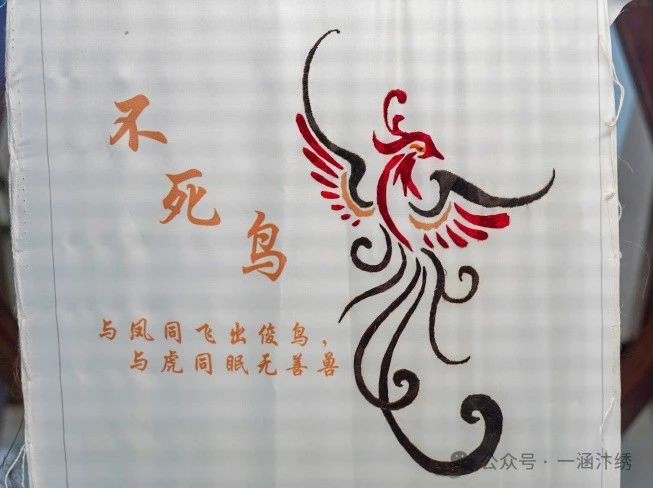 不死鸟
与凤同飞出俊鸟，
与虎同眠无善兽
公众号·一涵汴绣